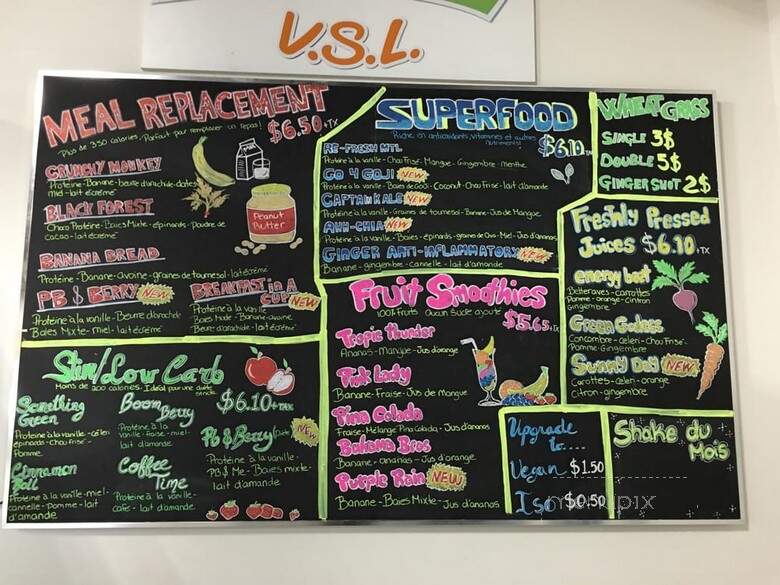 V.S.L.
MEAL REPLACEMENT
$6.50+TX
Plus de 350 calories. Parfait pour remplacer un repas!
CRUNCHY MONKEY
Protéine-Banane-beurre d'arachide-dates
miel-lait écrémé
BLACK FOREST
Choco Protéine-Baies Mixte-épinards-Poudre de
cacao-lait écrémé
Peanut
Butter
BANANA BREAD
Protéine-Banane-avoine-graines de tournesol-lait écrémé
PB & BERRY NEW
Protéine à la vanille-Beurre d'arachide
Baies Mixte-miel-lait écrémé
BREAKFAST IN A
CUP NEW
Protéine à la vanille
Baies Mixte-Banane-avoine
Beurre d'arachide-lait écrémé
Slim/Low Carb
Moins de 200 calories. Idéal pour une diète
$6.10+TAX
Something
Green
Protéine à la vanille-céleri
épinards-chou frisé-
Pomme
Boom
Berry
Protéine à la
vanille-fraise-miel-
lait d'amande
PB & Berry NEW
Protéine à la vanille-
PB & Me-Baies mixte-
lait d'amande
Cinnamon
Roll
Protéine à la vanille-miel-
cannelle-pomme-lait
d'amande
Coffee
Time
Protéine à la vanille-
café-lait d'amande
SUPERFOOD
Riche en antioxidants, vitamines et autres
nutriments!
$6.10 TX
RE-FRESH MTL
Protéine à la vanille-Chou Frisé-Mangue-Gingembre-menthe
GO 4 GOJI NEW
Protéine à la vanille-Baies de Goji-Coconut-Chou Frisé-lait d'amande
CAPTAIN KALE NEW
Protéine à la vanille-Graines de tournesol-Banane-Jus de Mangue
AHH-CHIA NEW
Protéine à la vanille-Baies-épinards-graines de Chia-Miel-Jus d'ananas
GINGER ANTI-INFLAMMATORY NEW
Banane-gingembre-cannelle-lait d'amande
Fruit Smoothies
100% Fruits Aucun sucre ajouté
$5.65+TX
Tropic Thunder
Ananas-Mangue-Jus d'orange
Pink Lady
Banane-Fraise-Jus de Mangue
Pina Colada
Fraise-Mélange Pina Colada-Jus d'ananas
Bahama Bros
Banane-ananas-Jus d'orange
Purple Rain NEW
Banane-Baies Mixte-Jus d'ananas
WHEAT GRASS
SINGLE 3$
DOUBLE 5$
GINGER SHOT 2$
Freshly Pressed
Juices $6.10+TX
energy beet
Betteraves-carottes
Pomme-orange-citron
Gingembre
Green Godess
Concombre-celeri-Chou Frisé-
Pomme-Gingembre
Sunny Day NEW
Carottes-celeri-orange
Citron-gingembre
Upgrade
to....
Vegan $1.50
Iso $0.50
Shake du
Mois